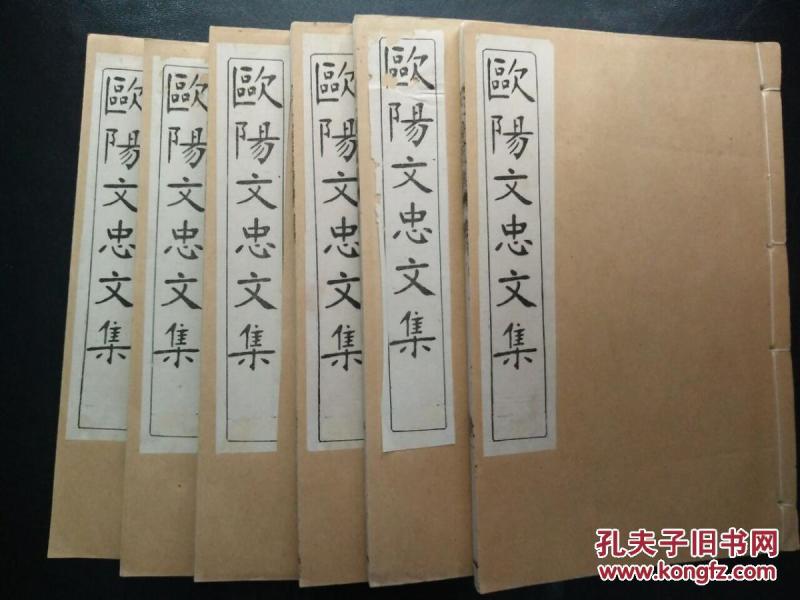 歐陽文忠文集
歐陽文忠文集
歐陽文忠文集
歐陽文忠文集
歐陽文忠文集
歐陽文忠文集
孔夫子旧书网
www.kongfz.com